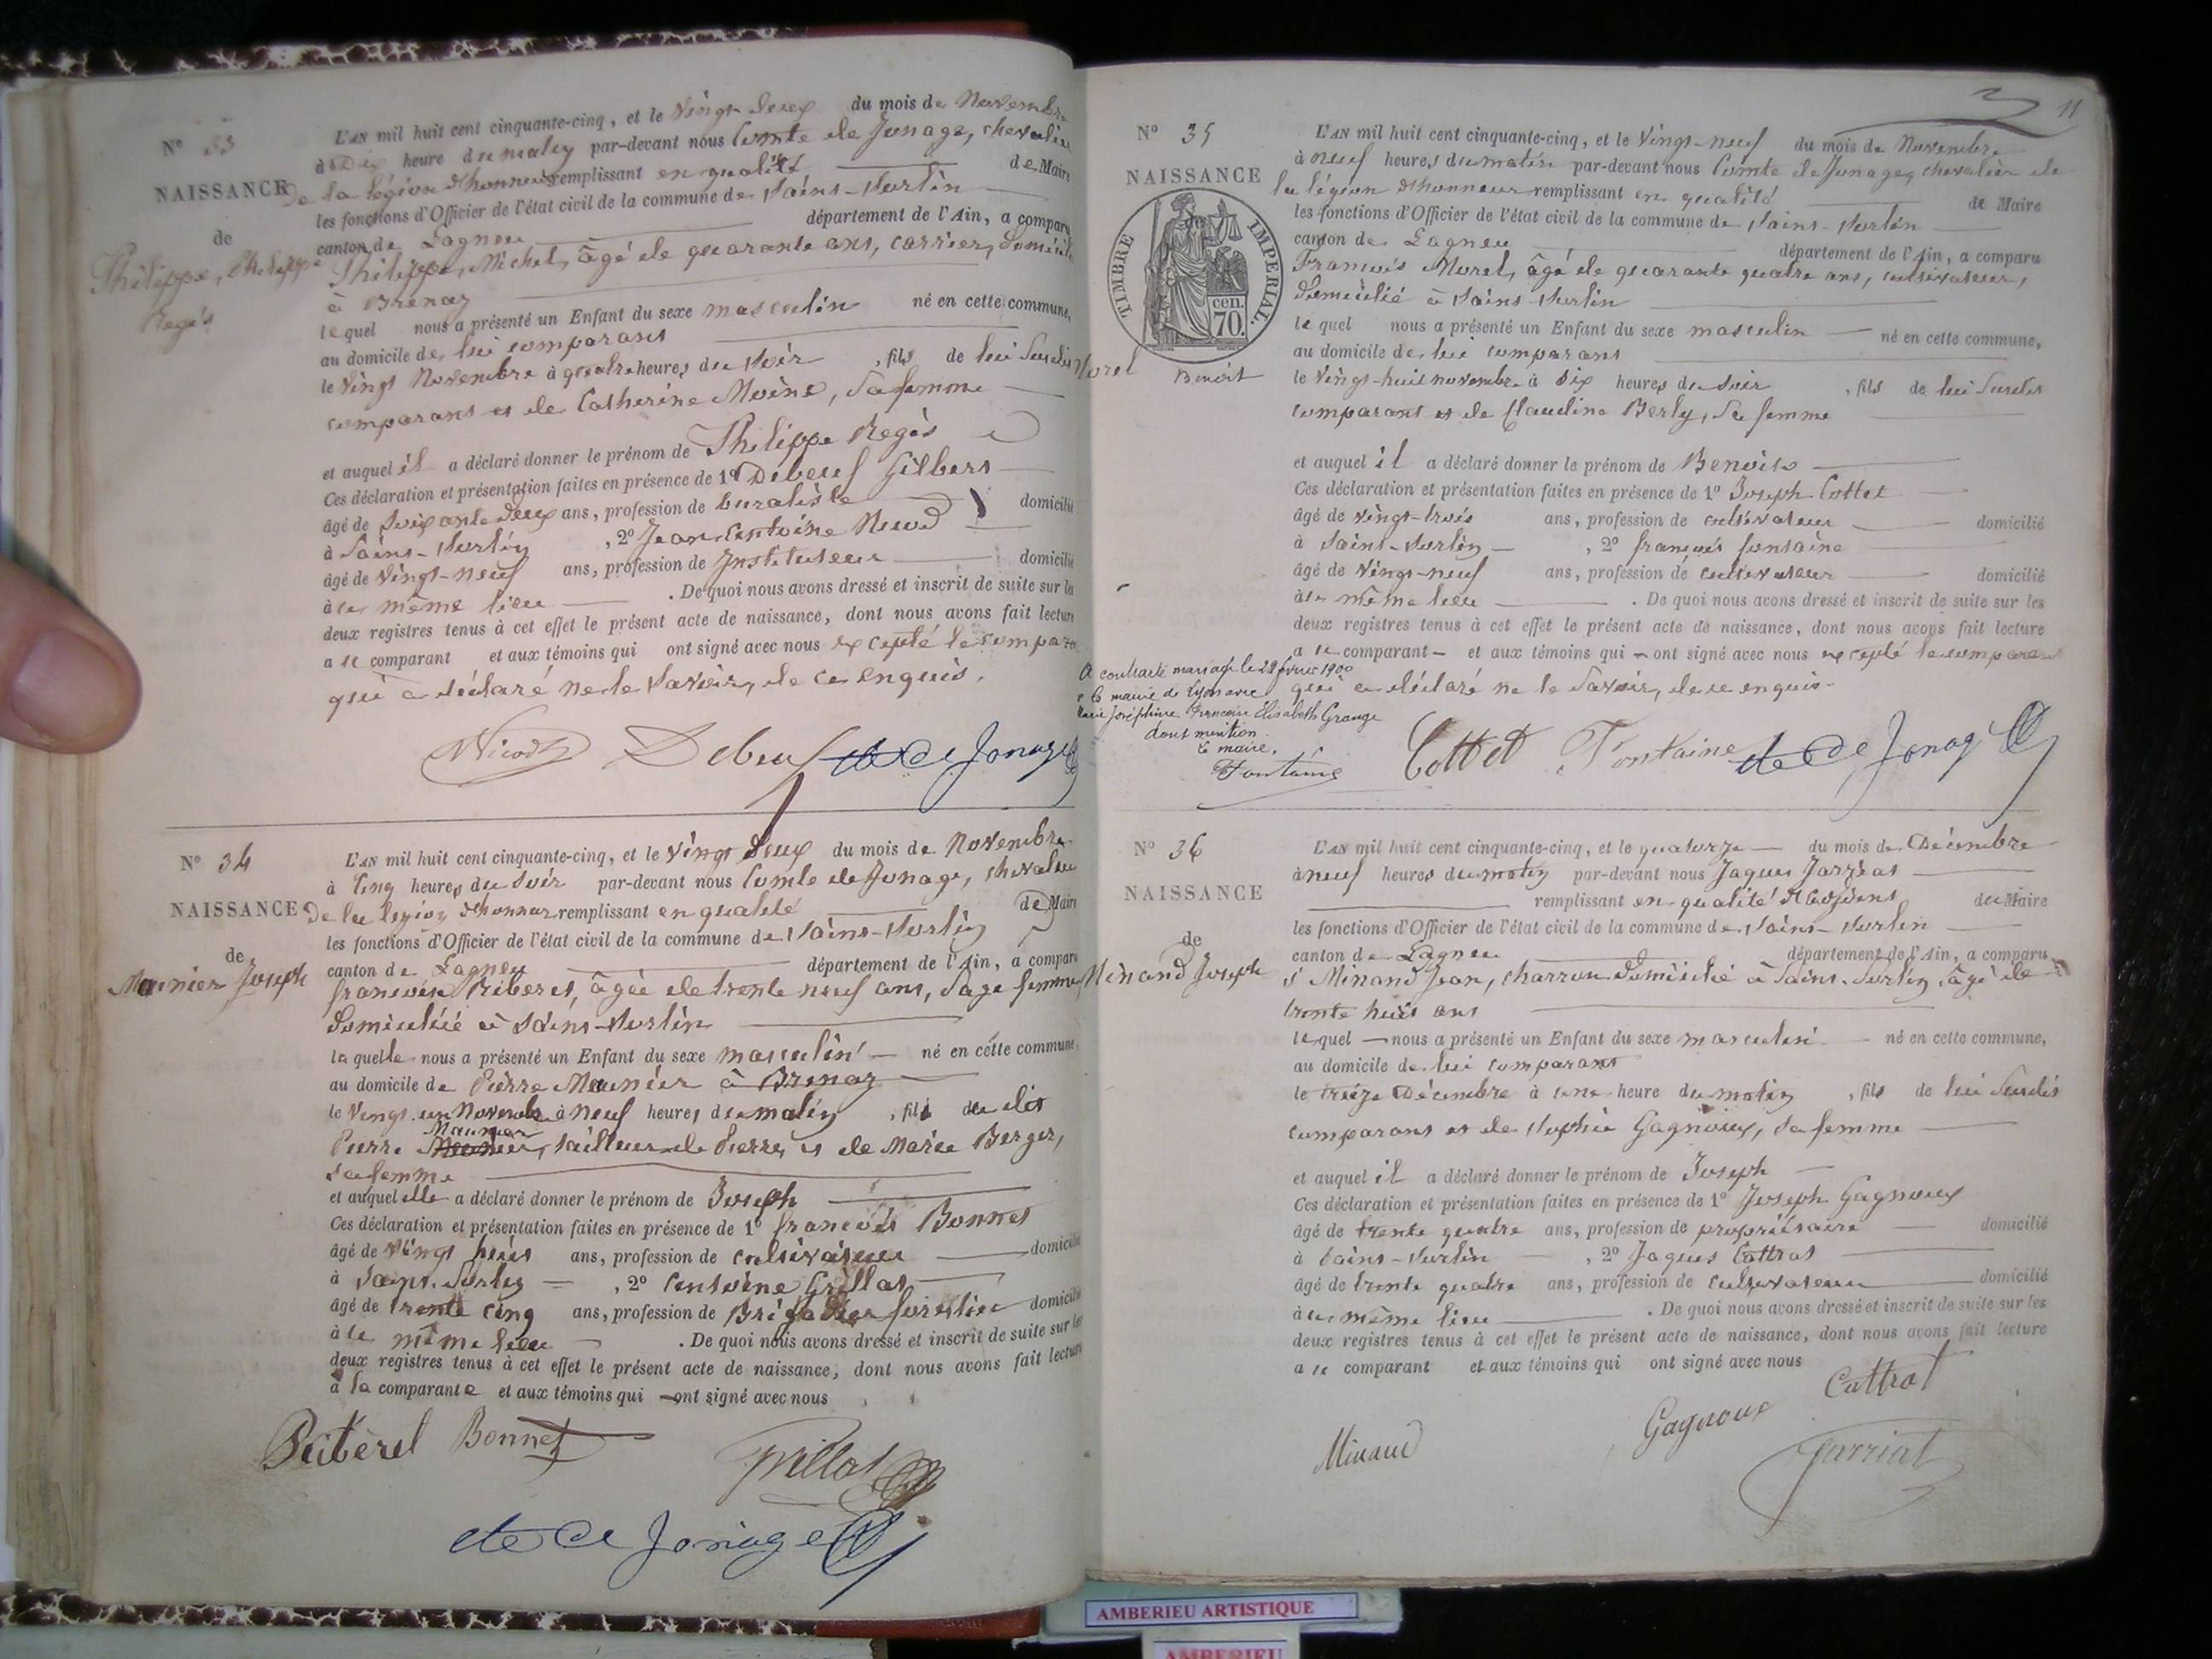 N° 33
NAISSANCE
de
Philippe, Philippe
Regis
L'AN mil huit cent cinquante-cinq, et le vingt deux du mois de Novembre
à Dix heure du matin par-devant nous Comte de Jonage, chevalier
de la légion d'honneur remplissant en qualité de Maire
les fonctions d'Officier de l'état civil de la commune de Saint-Sorlin
canton de Lagneu département de l'Ain, a comparu
Philippe, Michel, âgé de quarante ans, carrier, domicilié
à Brenaz
lequel nous a présenté un Enfant du sexe masculin né en cette commune,
au domicile de lui comparant
le vingt Novembre à quatre heures du soir, fils de lui susdit
comparant et de Catherine Moine, sa femme
et auquel il a déclaré donner le prénom de Philippe Regis
Ces déclaration et présentation faites en présence de 1° Debeuf Gilbert
âgé de soixante deux ans, profession de buraliste domicilié
à Saint-Sorlin, 2° Jean Antoine
âgé de vingt-neuf ans, profession de Instituteur domicilié
à le même lieu. De quoi nous avons dressé et inscrit de suite sur les
deux registres tenus à cet effet le présent acte de naissance, dont nous avons fait lecture
a le comparant et aux témoins qui ont signé avec nous excepté le comparant
qui a déclaré ne le savoir, de ce enquis.
Debeuf cte de Jonage
N° 34
NAISSANCE
de
Maunier Joseph
L'AN mil huit cent cinquante-cinq, et le vingt deux du mois de Novembre
à cinq heures du soir par-devant nous Comte de Jonage, chevalier
de la legion d'honneur remplissant en qualité de Maire
les fonctions d'Officier de l'état civil de la commune de Saint-Sorlin
canton de Lagneu département de l'Ain, a comparu
francoise Riberel, âgée de trente neuf ans, sage femme
domiciliée à Saint-Sorlin
laquelle nous a présenté un Enfant du sexe masculin né en cette commune,
au domicile de Pierre Maunier à Brenaz
le vingt un Novembre à neuf heures du matin, fils du dit
Maunier
Pierre Meunier, tailleur de Pierre, et de Marie Berger,
sa femme
et auquel elle a déclaré donner le prénom de Joseph
Ces déclaration et présentation faites en présence de 1° francois Bonnet
âgé de vingt huit ans, profession de cultivateur domicilié
à Saint-Sorlin, 2° Antoine Grillat
âgé de trente cinq ans, profession de Brigadier forestier domicilié
à le même lieu. De quoi nous avons dressé et inscrit de suite sur les
deux registres tenus à cet effet le présent acte de naissance, dont nous avons fait lecture
à la comparante et aux témoins qui ont signé avec nous
Bonnet Grillat
cte de Jonage
11
N° 35
NAISSANCE
TIMBRE IMPERIAL.
cen.
70.
Morel
Benoit
L'AN mil huit cent cinquante-cinq, et le vingt-neuf du mois de Novembre
à neuf heures du matin par-devant nous Comte de Jonage, chevalier de
la légion d'honneur remplissant en qualité de Maire
les fonctions d'Officier de l'état civil de la commune de Saint-Sorlin
canton de Lagneu département de l'Ain, a comparu
François Morel, âgé de quarante quatre ans, cultivateur,
domicilié à Saint-Sorlin
lequel nous a présenté un Enfant du sexe masculin né en cette commune,
au domicile de lui comparant
le vingt-huit novembre à six heures du soir, fils de lui susdit
comparant et de Claudine Berly, sa femme
et auquel il a déclaré donner le prénom de Benoit
Ces déclaration et présentation faites en présence de 1° Joseph Cottet
âgé de vingt-trois ans, profession de cultivateur domicilié
à Saint-Sorlin, 2° françois fontaine
âgé de vingt-neuf ans, profession de cultivateur domicilié
à le même lieu. De quoi nous avons dressé et inscrit de suite sur les
deux registres tenus à cet effet le présent acte de naissance, dont nous avons fait lecture
a le comparant et aux témoins qui ont signé avec nous excepté le comparant
qui a déclaré ne le savoir, de ce enquis.
A contracté mariage le 1900
à la mairie de Lyon avec
Marie Joséphine Francoise Elisabeth Grange
dont mention.
Le maire,
Fontaine
Cottet Fontaine cte de Jonage
N° 36
NAISSANCE
de
Minand Joseph
L'AN mil huit cent cinquante-cinq, et le quatorze du mois de Décembre
à neuf heures du matin par-devant nous Jaques Jarriat
remplissant en qualité d'Adjoint du Maire
les fonctions d'Officier de l'état civil de la commune de Saint-Sorlin
canton de Lagneu département de l'Ain, a comparu
Minand Jean, charron domicilié à Saint-Sorlin, âgé de
trente huit ans
lequel nous a présenté un Enfant du sexe masculin né en cette commune,
au domicile de lui comparant
le treize Décembre à une heure du matin, fils de lui susdit
comparant et de Sophie Gagnoux, sa femme
et auquel il a déclaré donner le prénom de Joseph
Ces déclaration et présentation faites en présence de 1° Joseph Gagnoux
âgé de trente quatre ans, profession de propriétaire domicilié
à Saint-Sorlin, 2° Jaques Cattrat
âgé de trente quatre ans, profession de cultivateur domicilié
à le même lieu. De quoi nous avons dressé et inscrit de suite sur les
deux registres tenus à cet effet le présent acte de naissance, dont nous avons fait lecture
a le comparant et aux témoins qui ont signé avec nous
Minand Gagnoux Cattrat
Jarriat
AMBERIEU ARTISTIQUE
AMBERIEU